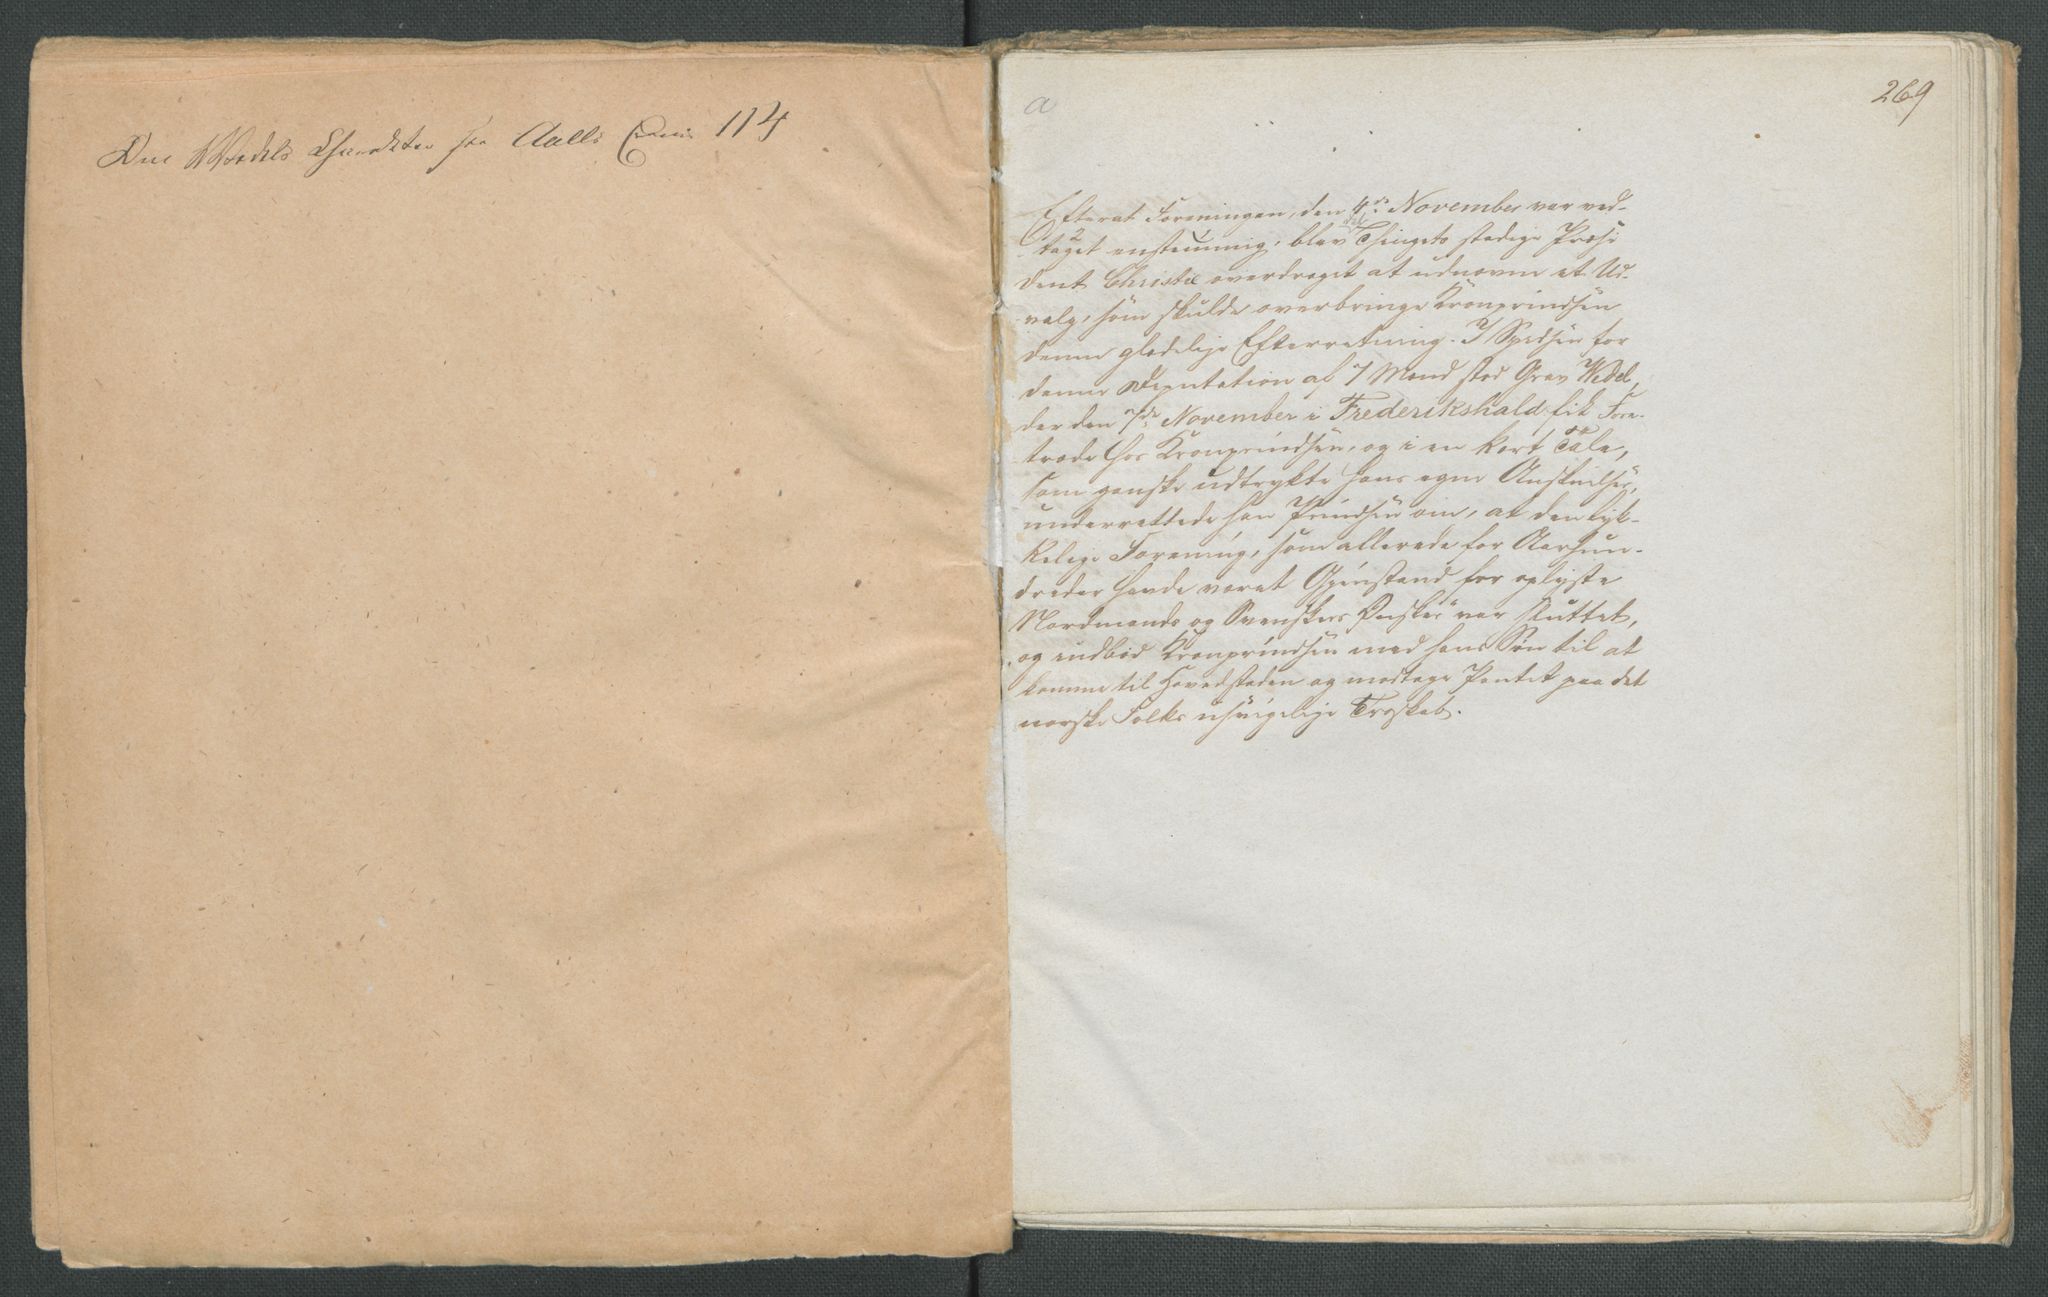 Om Wedels Charakter see Aalls Erin. 114
a
269
Efterat Foreningen, den 4de November var ved-
taget enstemmig, blev Thingets stadige Præsi
dent Christie overdraget at udnævne et Ud-
valg, som skulde overbringe Kronprindsen
denne glædelige Efterretning. I Spidsen for
denne Deputation af 7 Mænd stod Grev Wedel,
der den 7de November i Frederikshald fik Fore-
træde hos Kronprindsen, og i en kort Tale,
som ganske udtrykte hans egne Anskuelser,
underrettede han Prindsen om, at den lyk-
kelige Forening, som allerede for Aarhun-
dreder havde været Gjenstand for oplyste
Nordmænds og Svenskes Ønsker var sluttet,
og indbød Kronprindsen med hans Søn til at
komme til Hovedstaden og modtage Pantet paa det
norske Folks usvigelige Troskab.